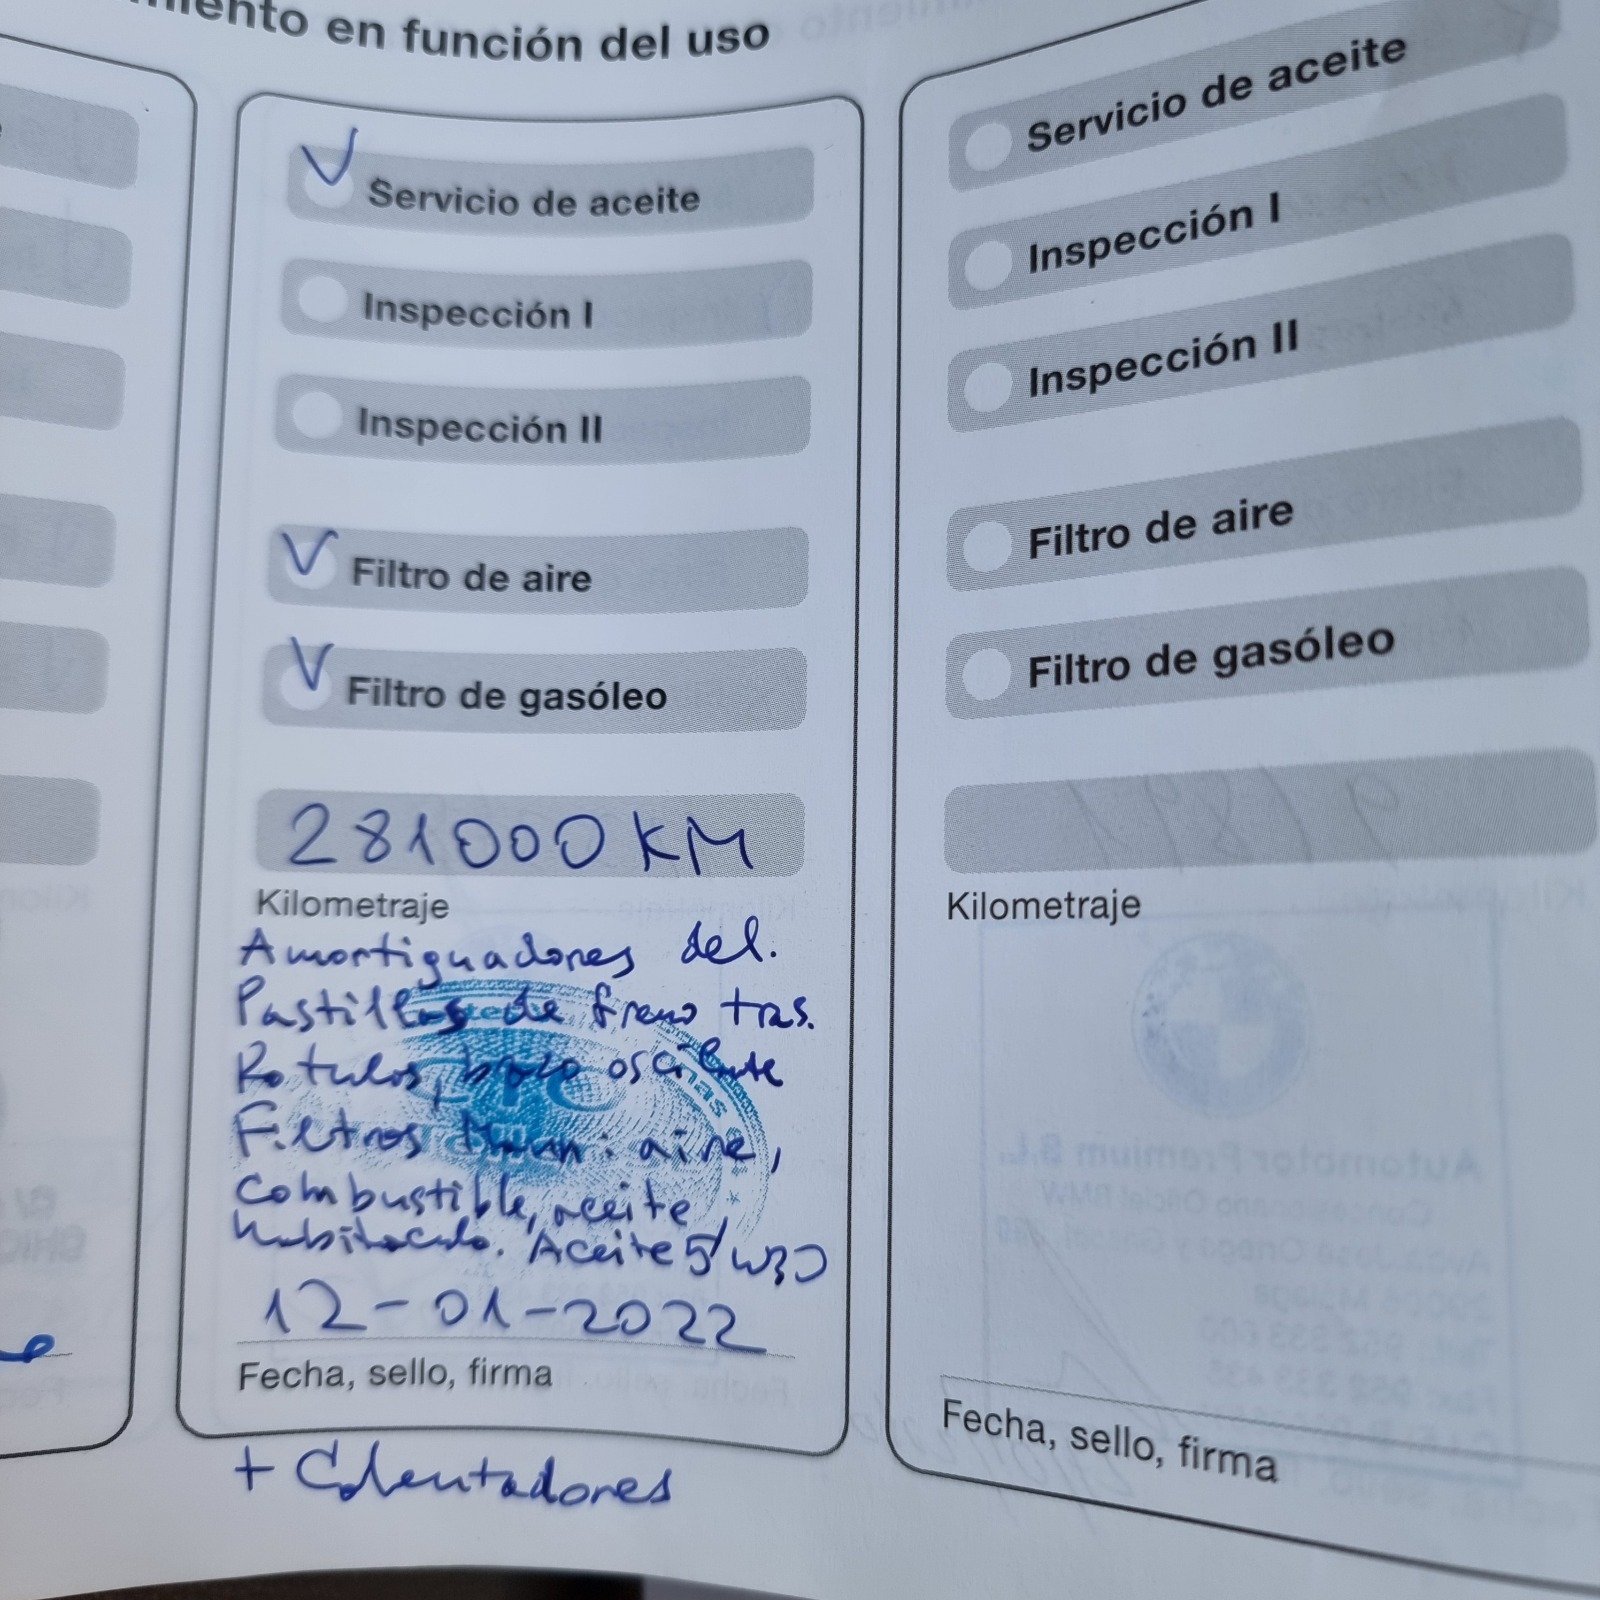 en función del uso
Servicio de aceite
Inspección I
Inspección II
Filtro de aire
Filtro de gasóleo
281000 KM
Kilometraje
Amortiguadores del.
Pastillas de freno tras.
Rotulas, brazo oscilante
Filtros Mann: aire,
combustible, aceite,
habitaculo. Aceite 5W30
12-01-2022
Fecha, sello, firma
+ Calentadores
Servicio de aceite
Inspección I
Inspección II
Filtro de aire
Filtro de gasóleo
Kilometraje
Fecha, sello, firma